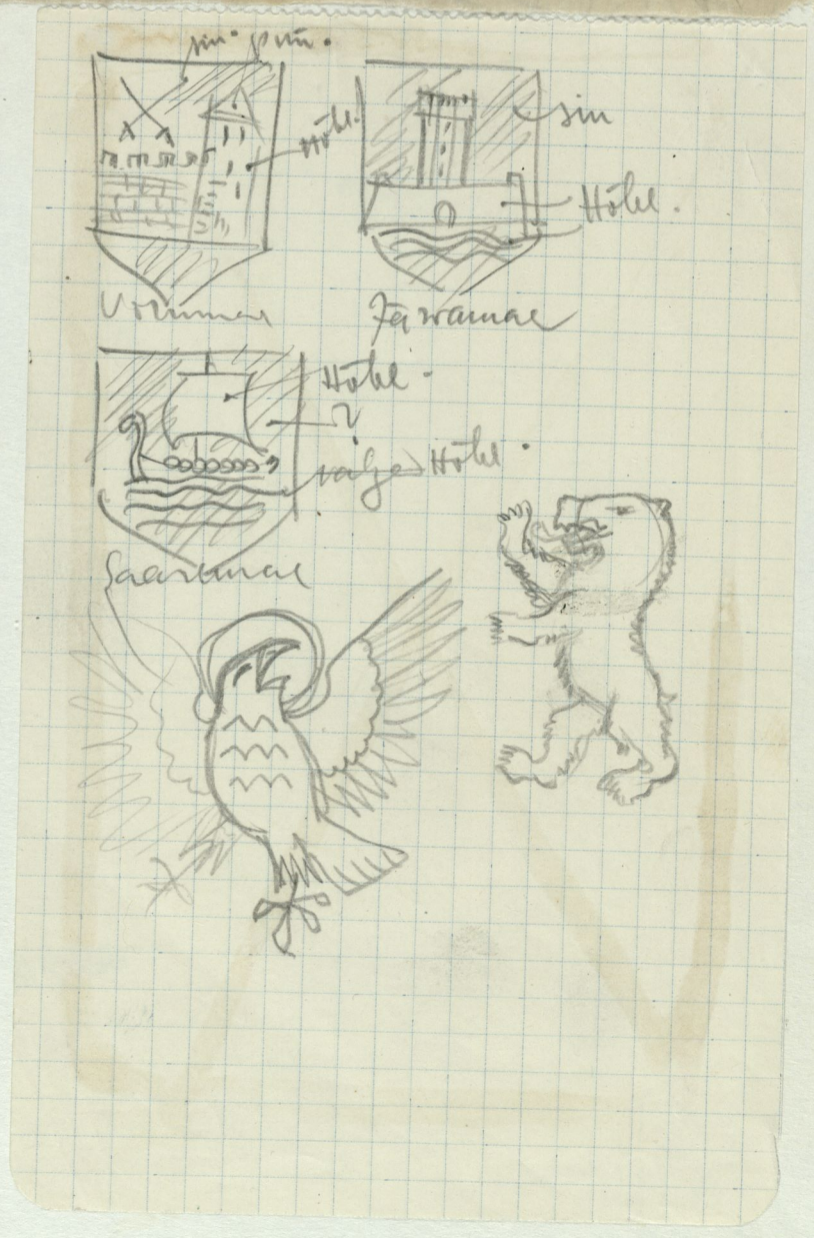 sin. pun.
Hõbe.
sin
Hõbe.
Virumaa
Järvamaa
Hõbe.
?
valge Hõbe.
Saaremaa